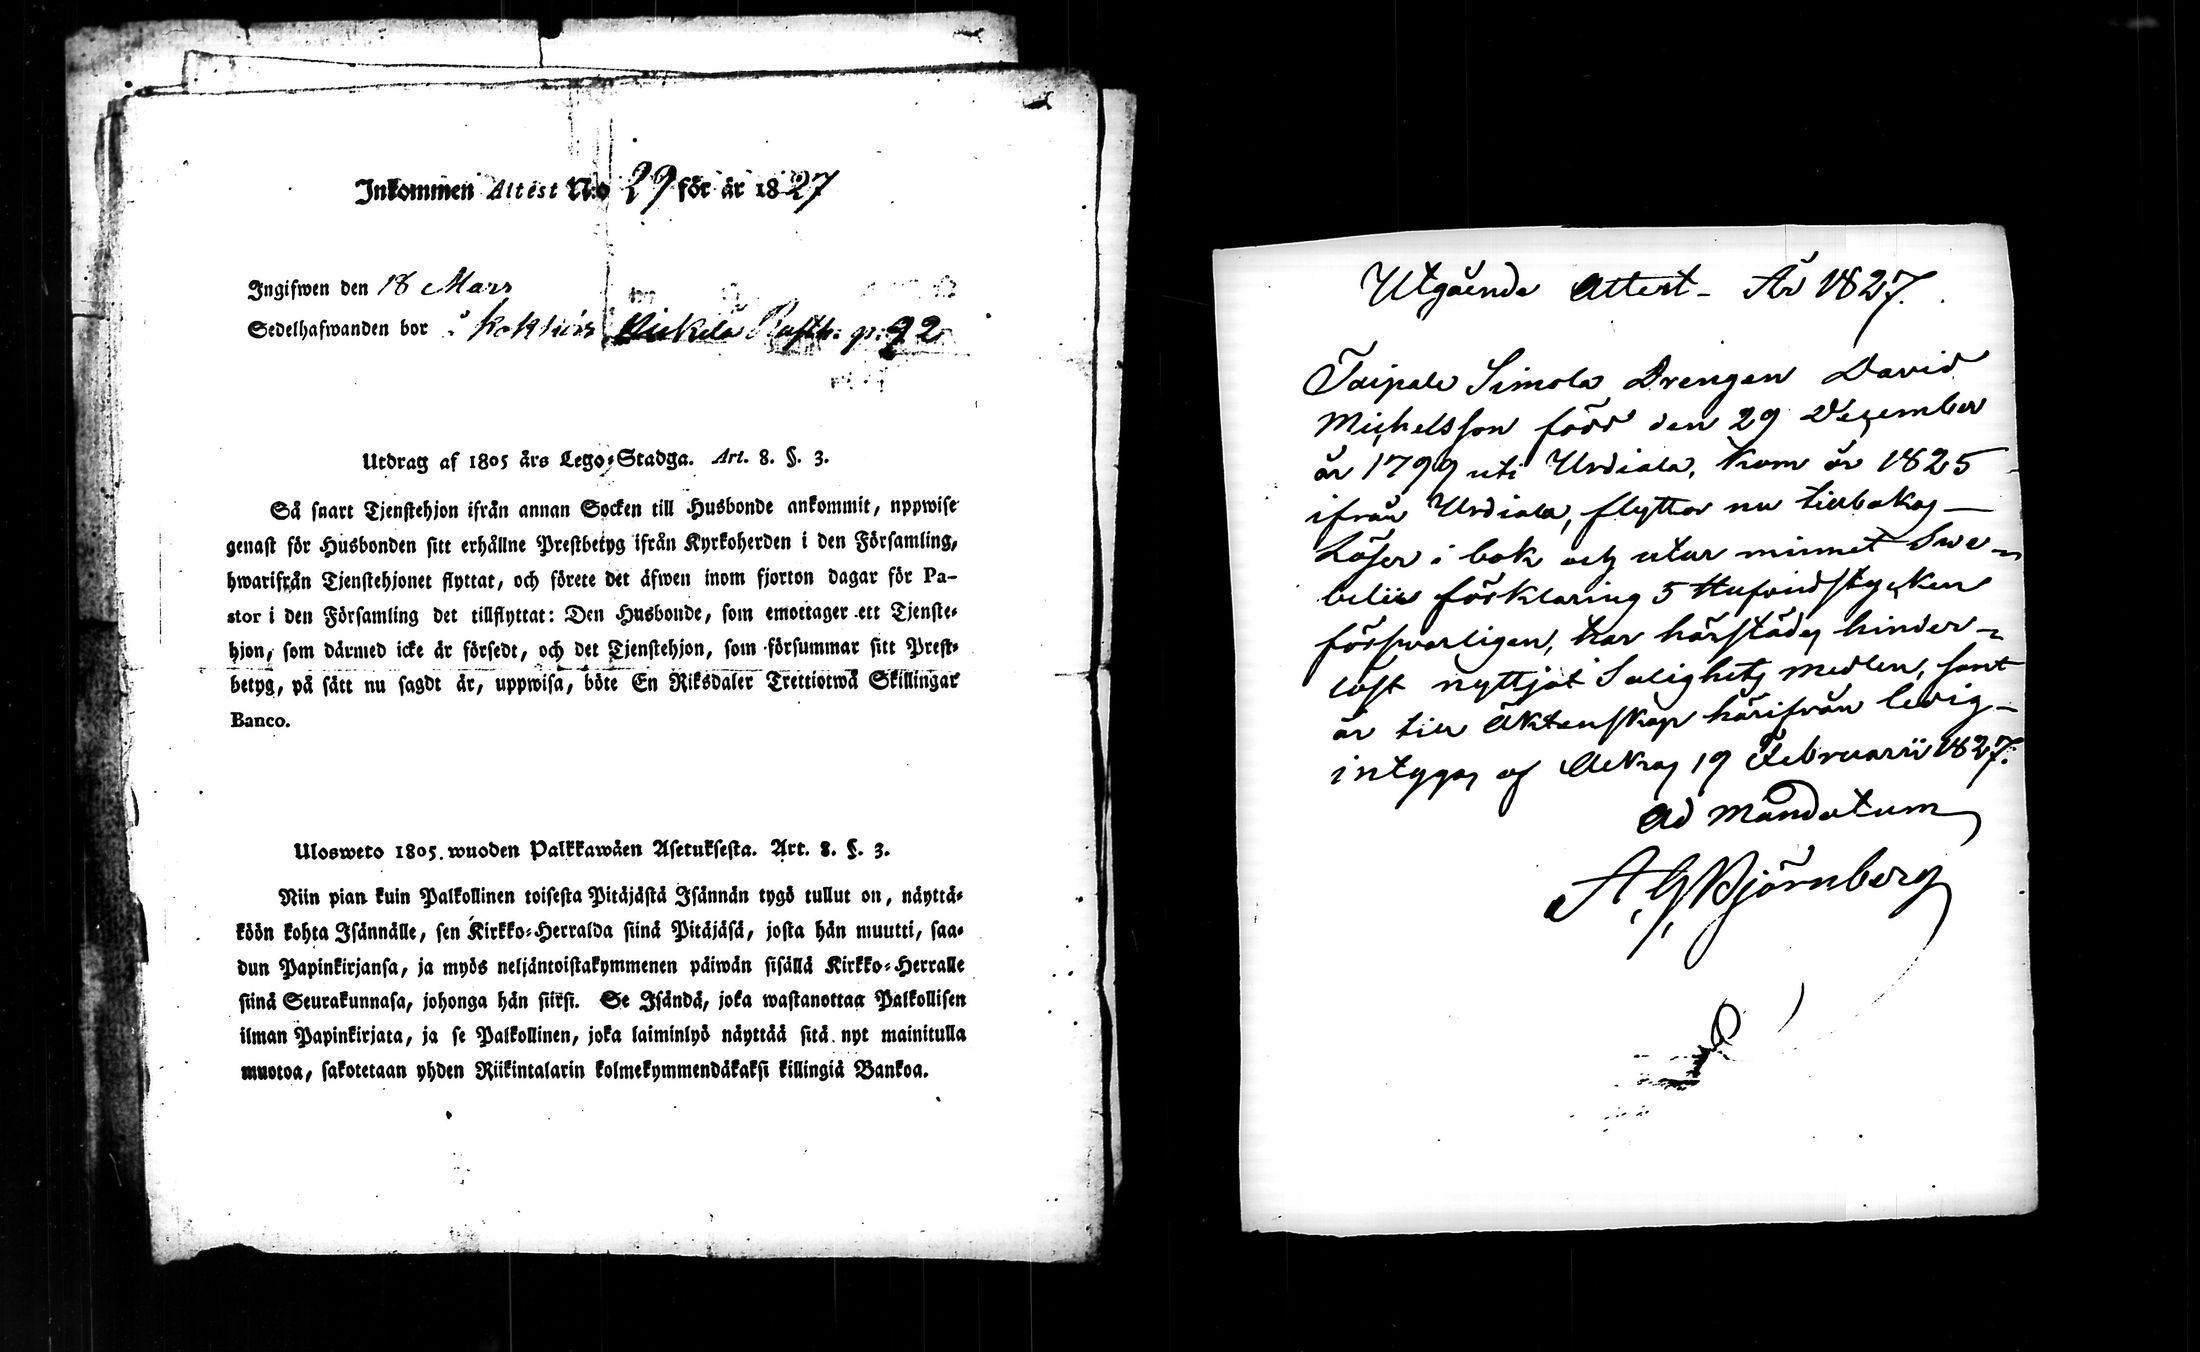 Inkommen Attest No 29 för år 1827
Ingifwen den 18 Mars
Sedelhafwanden bor i Rusth. p. 92
Utdrag af 1805 års Lego-Stadga. Art. 8. §. 3.
Så snart Tjenstehjon ifrån annan Socken till Husbonde ankommit, uppwise
genast för Husbonden sitt erhållne Prestbetyg ifrån Kyrkoherden i den Församling,
hwarifrån Tjenstehjonet flyttat, och förete det äfwen inom fjorton dagar för Pa-
stor i den Församling det tillflyttat: Den Husbonde, som emottager ett Tjenste-
hjon, som därmed icke är försedt, och det Tjenstehjon, som försummar sitt Prest-
betyg, på sätt nu sagdt är, uppwisa, böte En Riksdaler Trettiotwå Skillingar
Banco.
Ulosweto 1805. wuoden Palkkawäen Asetuksesta. Art. 8. §. 3.
Niin pian kuin Palkollinen toisesta Pitäjästä Isännän tygö tullut on, näyttä-
köön kohta Isännälle, sen Kirkko-Herralda siinä Pitäjäsä, josta hän muutti, saa-
dun Papinkirjansa, ja myös neljäntoistakymmenen päiwän sisällä Kirkko-Herralle
siinä Seurakunnasa, johonga hän siirsi. Se Isändä, joka wastanottaa Palkollisen
ilman Papinkirjata, ja se Palkollinen, joka laiminlyö näyttää sitä nyt mainitulla
muotoa, sakotetaan yhden Riikintalarin kolmekymmendäkaksi killingiä Bankoa.
Utgående Attest - År 1827.
Taipale Simola Drengen David
Michelsson född den 29 December
år 1799 uti Urdiala, kom år 1825
ifrån Urdiala, flyttar nu tillbakaz —
Läser i bok och utur minnet Swe-
belii förklaring 5 Hufvudstycken
försvarligen, har härstädes hinder-
löst nyttjat Salighetz medlen, samt
är till Äktenskap härifrån ledig —
intygas af Ackas 19 Februarii 1827.
Ad Mandatum
A. G. Björnberg